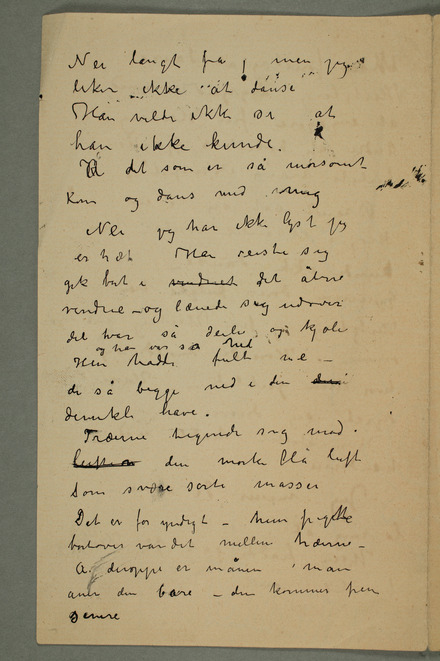 Nei langt fra, men jeg
liker ikke at danse
Han vilde ikke si at
han ikke kunde.
det som er så morsomt
Kom og dans med mig
Nei jeg har ikke lyst jeg
er træt Han reiste sig
gik bort i vinduet det åbne
vindue – og lænede sig udover
det var så deilig og kjøli
og han var så
Hun hadde fult me –
de så begge ned i den
dunkle have.
Træerne tegnede sig mod
luften den mørke blå luft
Som svære sorte masser
Det er for yndigt – hun pegte
bortover vandet mellem træerne –
A. deroppe er månen man
aner den bare – den kommer frem
senere